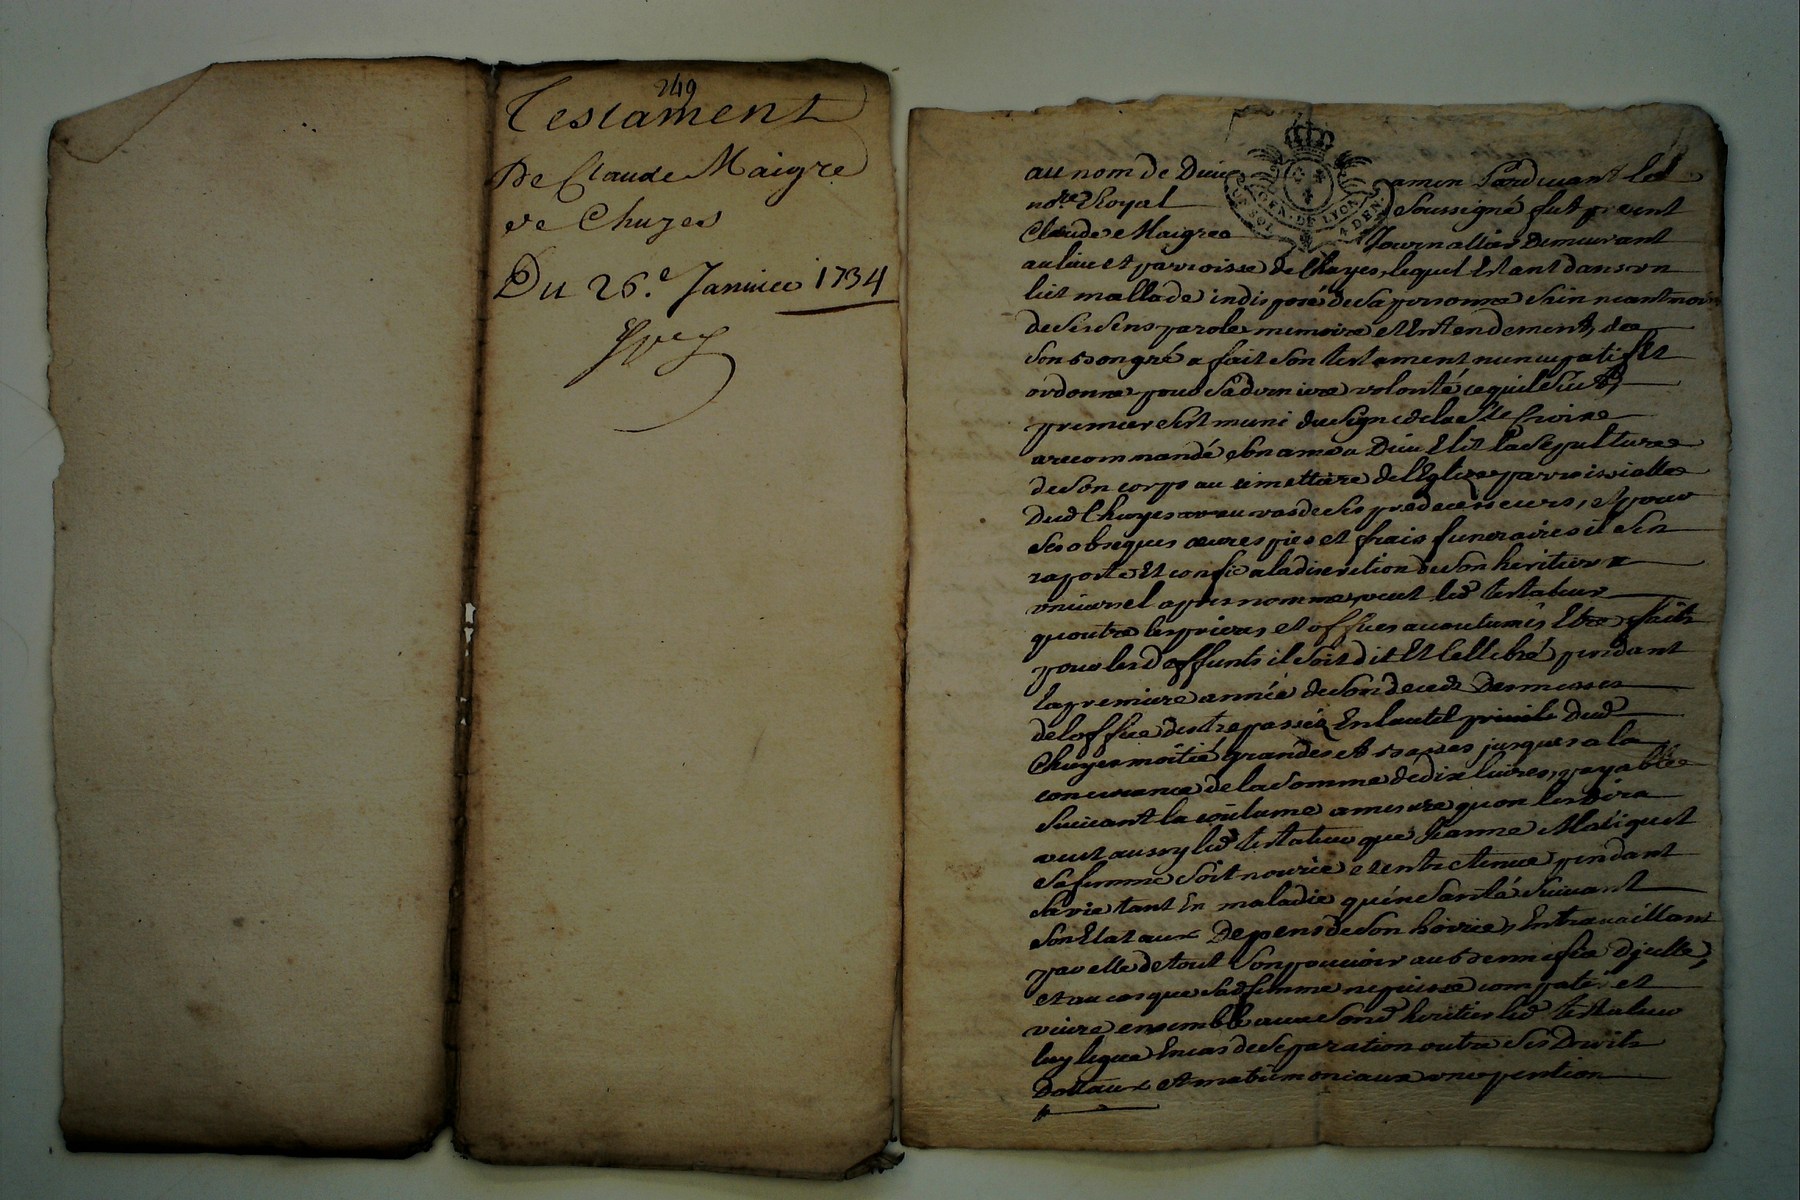 249
Testament
De Claude Maigre
de Chuyes
Du 26.e Janvier 1734
au nom de Dieu amen Pardevant le
no.re Royal soussigné fut present
Claude Maigre Journallier Demeurant
au lieu et parroisse de Chuyes, lequel Estant dans un
lict mallade indisposé de sa personne sain neantmoins
de ses sens parole memoire et Entendement, de
son bon gré a fait son testament nuncupatif Et
ordonne pour sa derniere volonté ce quil suit,
premier s'est muni du signe de la Ste Croix
a recommandé son ame a Dieu Elit la sepulture
de son corps au cimettiere de l'Eglise parroissialle
dud Chuyes au vas de ses predecesseurs, et pour
ses obseques œuvres pies et frais funeraires il s'en
raporte Et confie a la discretion de son heritier
universel apres nommé, veut led testateur
qu'outre les prieres et offices accoutumés Etre faits
pour les deffunts il soit dit Et cellebré pendant
la premiere année de son deceds Des messes
de l'office des trepassés En l'autel privile dud
Chuyes moitié grandes et basses jusques a la
concurrance de la somme de dix livres, payable
suivant la coûtume a mesure qu'on les dira
veut aussy led testateur que Jeanne Matiguet
sa femme soit nourrie et entretenue pendant
sa vie tant En maladie qu'en santé suivant
son Etat aux Depens de son hoirie, En travaillant
par elle de tout son pouvoir au benefice d'jcelle,
et au cas que sad femme ne puisse compatir et
vivre ensemble avec sond heritier led testateur
luy legue En cas de separation outre ses Droits
Dottaux et matrimoniaux une pention